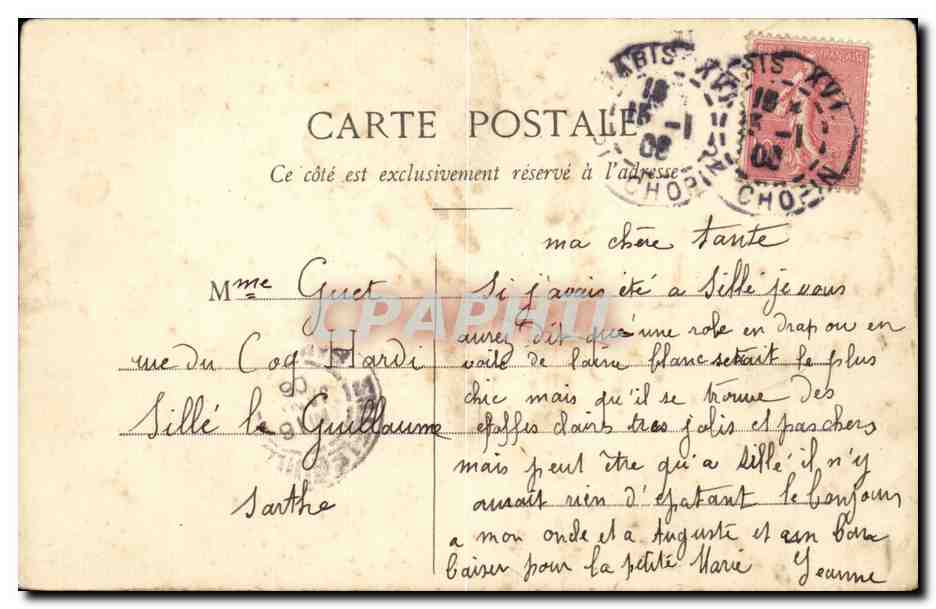 CARTE POSTALE
Ce côté est exclusivement réservé à l'adresse
PARIS XVI
15 -1
06
CHOPIN
PARIS XVI
15 -1
06
CHOPIN
CPAPHIL
Mme Guet
rue du Coq Hardi
Sillé le Guillaume
Sarthe
ma chère tante
Si j'avais été a Sillé je vous
aurez dit qu'une robe en drap ou en
voile de laine blanc serait le plus
chic mais qu'il se trouve des
etoffes claires tres jolis et pas chers
mais peut être qu'a Sillé il n'y
aurait rien d'epatant le bonjour
a mon oncle et a Auguste et un bon
baiser pour la petite Marie Jeanne